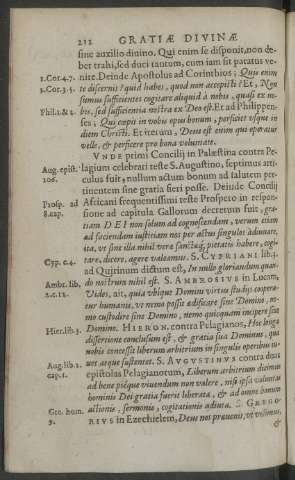 212 GRATIÆ DIVINÆ
sine auxilio divino. Qui enim se disponit, non de-
ber trahi, sed duci tantum, cum iam sit paratus ve-
1.Cor.4.7. nire. Deinde Apostolus ad Corinthios; Quis enim
2.Cor.3.5. te discernit? quid habes, quod non accepisti? Et, Non
sumus sufficientes cogitare aliquid à nobis, quasi ex no-
Phil.1.& 2. bis, sed sufficientia nostra ex Deo est. Et ad Philippen-
ses; Qui cœpit in vobis opus bonum, perficiet vsque in
diem Christi. Et iterum, Deus est enim qui operatur
velle, & perficere pro bona voluntate.
VNDE primi Concilij in Palæstina contra Pe-
Aug. epist. lagium celebrati teste S. Augustino, septimus arti-
106. culus fuit, nullum actum bonum ad salutem per-
tinentem sine gratia fieri posse. Deinde Concilij
Prosp. ad Africani frequentissimi teste Prospero in respon-
8.cap. sione ad capitula Gallorum decretum fuit, gra-
tiam DEI non solum ad cognoscendam, verum etiam
ad faciendam iustitiam nos per actus singulos adiuuare,
ita, vt sine illa nihil veræ sanctæq; pietatis habere, cogi-
Cyp. c.4. tare, dicere, agere valeamus. S. CYPRIANI lib.3.
ad Quirinum dictum est, In nullo gloriandum quan-
Ambr. lib. do nostrum nihil est. S. AMBROSIVS in Lucam,
2.c.12. Vides, ait, quia vbique Domini virtus studijs coopera-
tur humanis, vt nemo possit ædificare sine Domino, ne-
mo custodire sine Domino, nemo quicquam incipere sine
Hier.lib.3. Domino. HIERON. contra Pelagianos, Hoc longa
dissertione conclusum est, & gratia sua Dominus, qua
nobis concessit liberum arbitrium in singulis operibus iu-
Aug.lib.2. uet atque sustentet. S. AVGVSTINVS contra duas
cap.5. epistolas Pelagianorum, Liberum arbitrium diximus
ad bene piéque viuendum non valere, nisi ipsa voluntas
hominis Dei gratia fuerit liberata, & ad omne bonum
Gre. hom. actionis, sermonis, cogitationis adiuta. S. GREGO-
9. RIVS in Ezechielem, Deus nos præuenit, vt velimus,
&